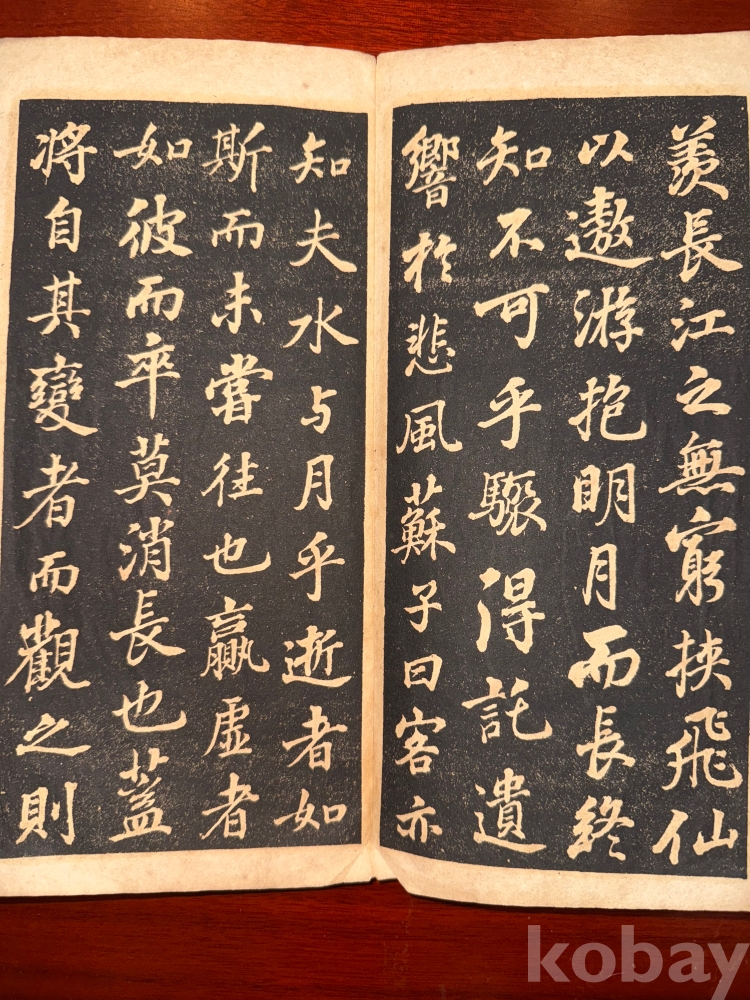 羨長江之無窮挾飛仙
以遨游抱明月而長終
知不可乎驟得託遺
響於悲風蘇子曰客亦
知夫水与月乎逝者如
斯而未嘗往也贏虛者
如彼而卒莫消長也蓋
將自其變者而觀之則
kobay